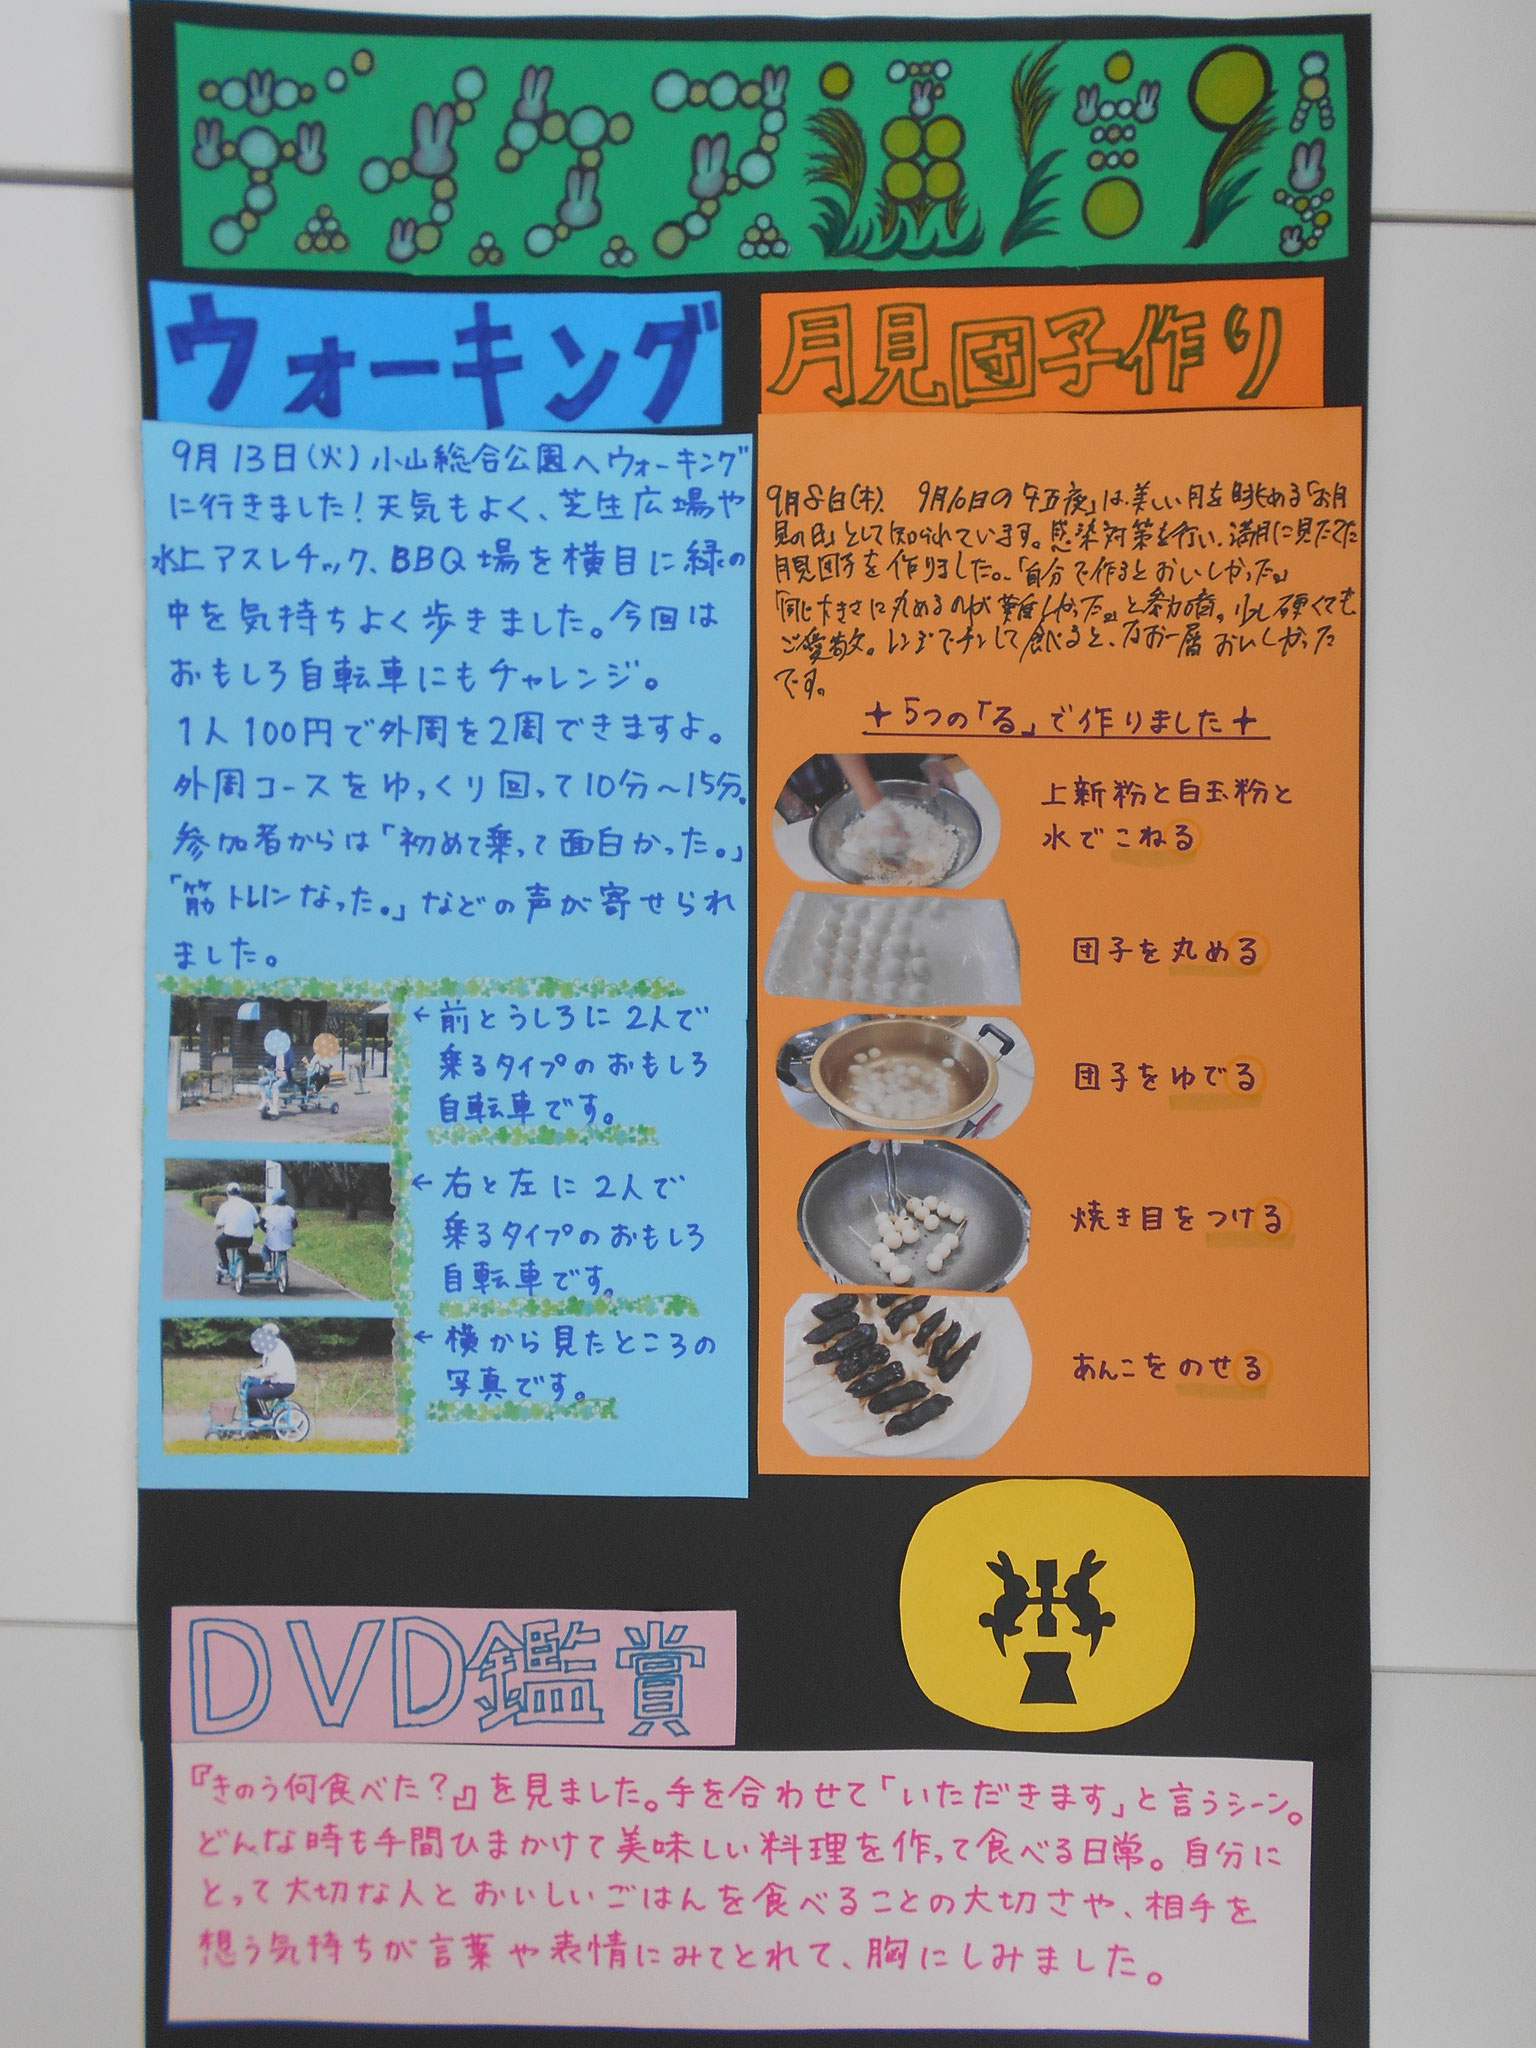 デイケア通信9月号
ウォーキング
9月13日(火)小山総合公園へウォーキング
に行きました!天気もよく、芝生広場や
水上アスレチック、BBQ場を横目に緑の
中を気持ちよく歩きました。今回は
おもしろ自転車にもチャレンジ。
1人100円で外周を2周できますよ。
外周コースをゆっくり回って10分〜15分。
参加者からは「初めて乗って面白かった。」
「筋トレになった。」などの声が寄せられ
ました。
←前とうしろに2人で
乗るタイプのおもしろ
自転車です。
←右と左に2人で
乗るタイプのおもしろ
自転車です。
←横から見たところの
写真です。
月見団子作り
9月8日(木)、9月10日の「十五夜」は美しい月を眺める「お月
見の日」として知られています。感染対策を行い、満月に見たてた
月見団子を作りました。「自分で作るとおいしかった。」
「同じ大きさに丸めるのが難しかった。」と参加者。少し硬くても
ご愛敬。レンジでチンして食べると、なお一層おいしかった
です。
+5つの「る」で作りました+
上新粉と白玉粉と
水でこねる
団子を丸める
団子をゆでる
焼き目をつける
あんこをのせる
DVD鑑賞
『きのう何食べた?』を見ました。手を合わせて「いただきます」と言うシーン。
どんな時も手間ひまかけて美味しい料理を作って食べる日常。自分に
とって大切な人とおいしいごはんを食べることの大切さや、相手を
想う気持ちが言葉や表情にみてとれて、胸にしみました。